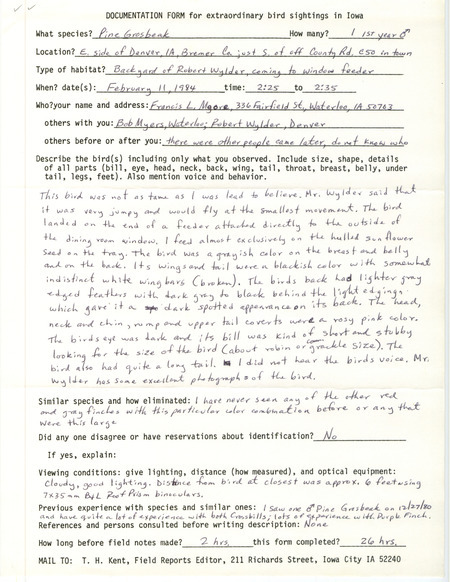 DOCUMENTATION FORM for extraordinary bird sightings in Iowa
What species? Pine Grosbeak How many? 1 1st year ♂
Location? E. side of Denver, IA, Bremer Co. just S. of off County Rd. C50 in town
Type of habitat? Backyard of Robert Wylder, coming to window feeder
When? date(s): February 11, 1984 time: 2:25 to 2:35
Who?your name and address: Francis L. Moore, 336 Fairfield St., Waterloo, IA 50703
others with you: Bob Myers, Waterloo; Robert Wylder, Denver
others before or after you: there were other people came later, do not know who
Describe the bird(s) including only what you observed. Include size, shape, details
of all parts (bill, eye, head, neck, back, wing, tail, throat, breast, belly, under
tail, legs, feet). Also mention voice and behavior.
This bird was not as tame as I was lead to believe. Mr. Wylder said that
it was very jumpy and would fly at the smallest movement. The bird
landed on the end of a feeder attached directly to the outside of
the dining room window. I feed almost exclusively on the hulled sunflower
seed on the tray. The bird was a grayish color on the breast and belly
and on the back. Its wings and tail were a blackish color with somewhat
indistinct white wingbars (broken). The birds back had lighter gray
edged feathers with dark gray to black behind the light edgings
which gave it a dark spotted appearance on its back. The head,
neck and chin, rump and upper tail coverts were a rosy pink color.
The birds eye was dark and its bill was kind of short and stubby
looking for the size of the bird (about robin or grackle size). The
bird also had quite a long tail. I did not hear the birds voice. Mr.
Wylder has some excellent photographs of the bird.
Similar species and how eliminated: I have never seen any of the other red
and gray finches with this particular color combination before or any that
were this large
Did any one disagree or have reservations about identification? No
If yes, explain:
Viewing conditions: give lighting, distance (how measured), and optical equipment:
Cloudy, good lighting. Distance from bird at closest was approx. 6 feet using
7x35 mm B&L Roof Prism binoculars.
Previous experience with species and similar ones: I saw one ♂ Pine Grosbeak on 12/27/80
and have quite a lot of experience with both Crossbills; lots of experience with Purple Finch.
References and persons consulted before writing description: None
How long before field notes made? 2 hrs. this form completed? 26 hrs.
MAIL TO: T. H. Kent, Field Reports Editor, 211 Richards Street, Iowa City IA 52240